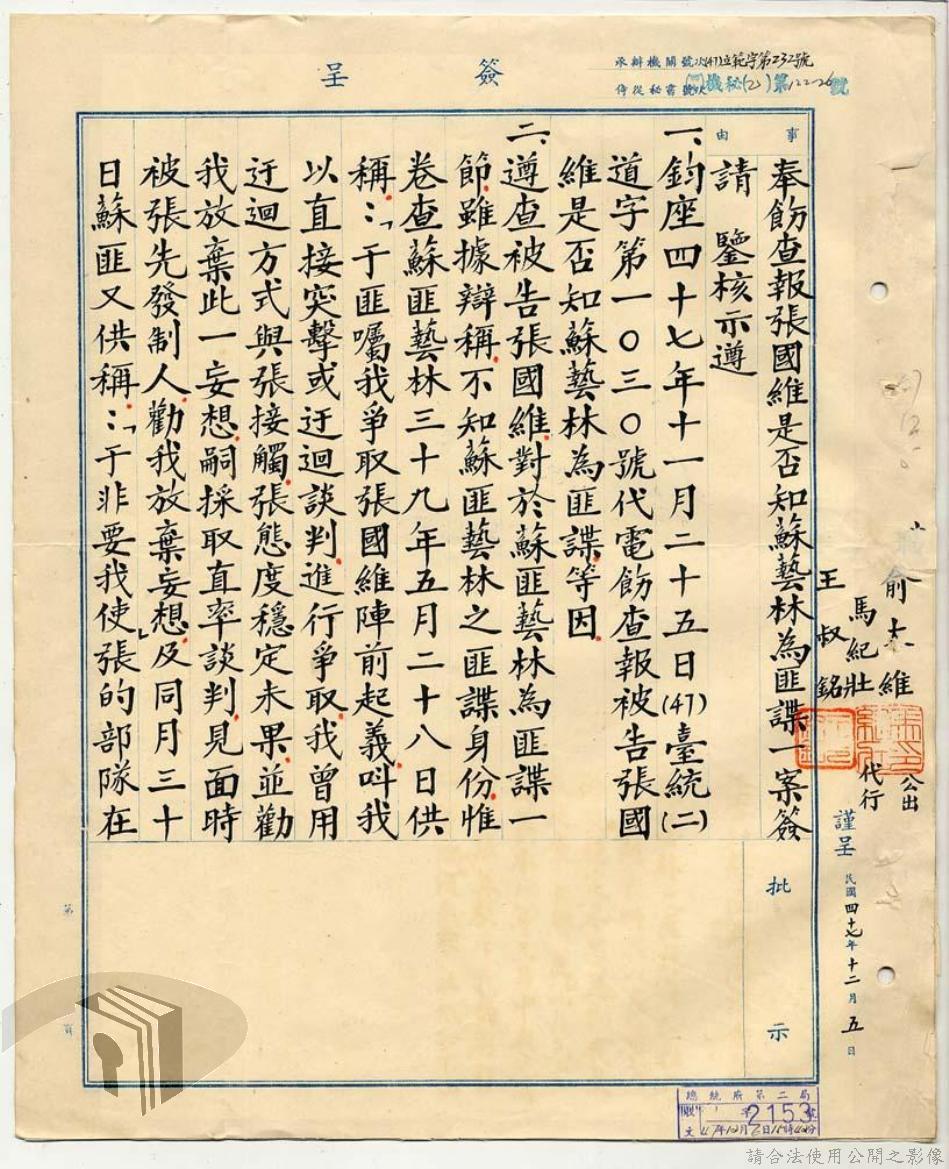 簽呈
承辦機關號次(47)立範字第232號
侍從秘書號次 機秘(乙)第122-26號
職 俞大維 公出
馬紀壯 代行
王叔銘
謹呈
民國四十七年十二月五日
事由
奉飭查報張國維是否知蘇藝林為匪諜一案簽
請 鑒核示遵
一、鈞座四十七年十一月二十五日(47)臺統(二)
道字第一〇三〇號代電飭查報被告張國
維是否知蘇藝林為匪諜等因。
二、遵查被告張國維,對於蘇匪藝林為匪諜一
節,雖據辯稱,不知蘇匪藝林之匪諜身份,惟
卷查蘇匪藝林三十九年五月二十八日供
稱:「于匪囑我爭取張國維陣前起義,叫我
以直接突擊或迂迴談判,進行爭取,我曾用
迂迴方式與張接觸,張態度穩定未果,並勸
我放棄此一妄想,嗣採取直率談判,見面時
被張先發制人,勸我放棄妄想」,及同月三十
日蘇匪又供稱:「于非要我使張的部隊在
批示
第 頁
總統府第二局
收文 字2153號
47年12月6日15時40分
請合法使用公開之影像